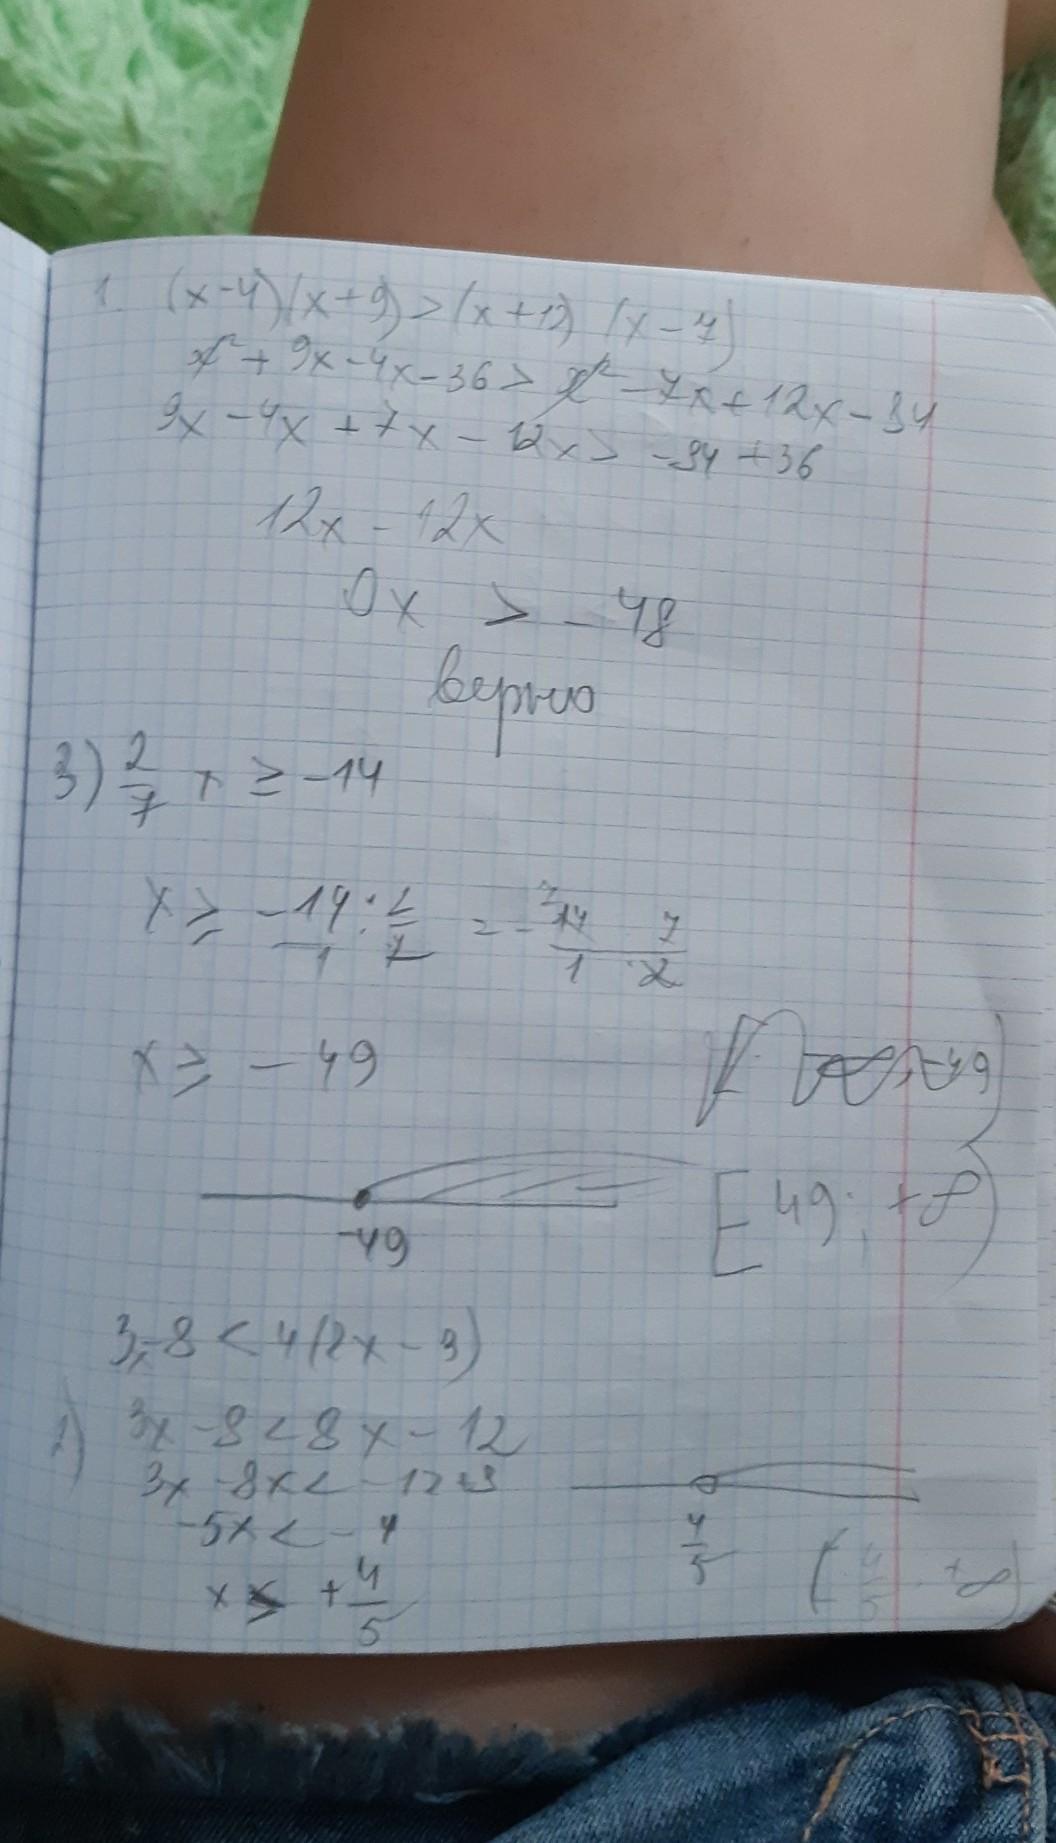 1. (x-4)(x+9)>(x+12)(x-7)
x²+9x-4x-36> x²-7x+12x-84
9x-4x+7x-12x> -84+36
12x-12x
0x > -48
верно
3) 2/7 x ≥ -14
x ≥ -14/1 : 2/7 = - 14/1 · 7/2
x ≥ -49
-49
[49; +∞)
3x-8<4(2x-3)
2) 3x-8<8x-12
3x-8x<-12+8
-5x<-4
x > +4/5
4/5
(4/5 +∞)